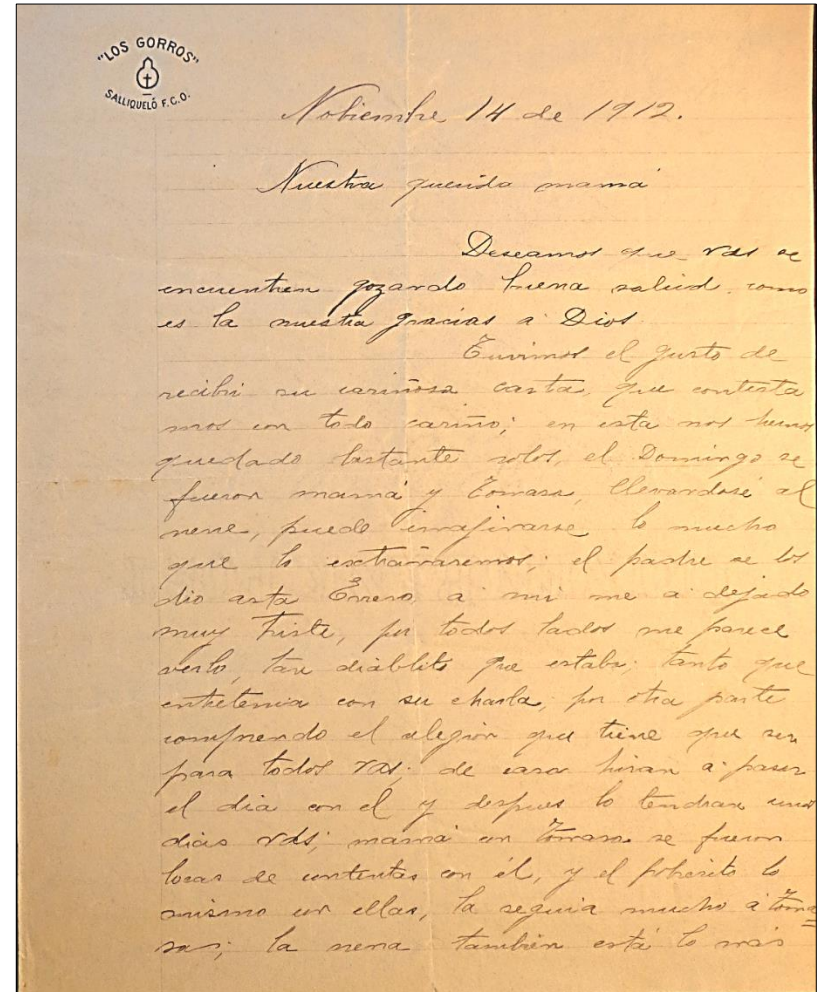 "LOS GORROS"
SALLIQUELÓ F.C.O.
Nobiembre 14 de 1912.
Nuestra querida mamá
Deseamos que Vds se
encuentren gozando buena salud como
es la nuestra gracias a Dios
Tuvimos el gusto de
recibir su cariñosa carta, que contesta
mos con todo cariño; en esta nos hemos
quedado bastante solos, el Domingo se
fueron mamá y Tomasa, llevandosé al
nene, puede imajinarse lo mucho
que lo extrañaremos; el padre se los
dio asta Enero, a mi me a dejado
muy triste, por todos lados me parece
verlo, tan diablito que estaba; tanto que
entretenia con su charla, por otra parte
comprendo el alegron que tiene que ser
para todos Vds; de casa hiran a pasar
el dia con el y despues lo tendran unos
dias Vds; mamá con Tomasa se fueron
locas de contentas con él, y el pobresito lo
mismo con ellas, la seguia mucho á Toma=
sa; la nena tambien está lo más